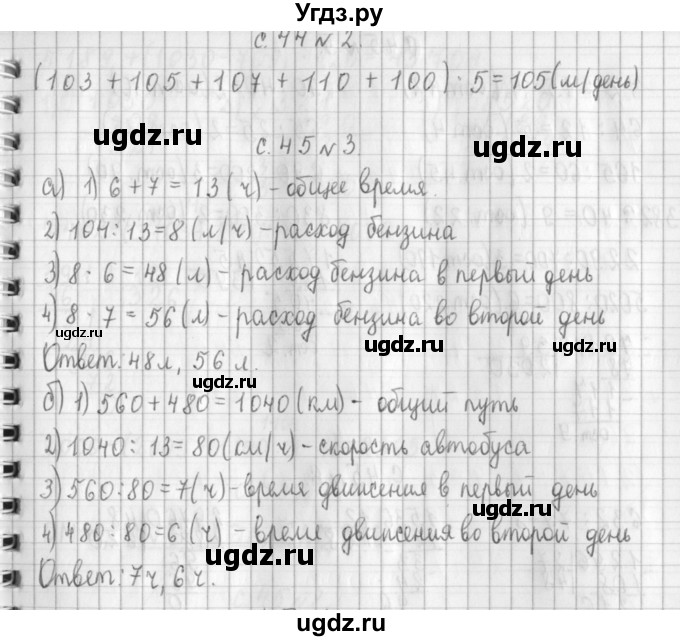 Угдз.ру
с. 44 № 2.
(103 + 105 + 107 + 110 + 100) : 5 = 105 (м/день)
ugdz.ru
ugdz.ru
с. 45 № 3
а) 1) 6 + 7 = 13 (ч) - общее время.
2) 104 : 13 = 8 (л/ч) - расход бензина
3) 8 · 6 = 48 (л) - расход бензина в первый день
4) 8 · 7 = 56 (л) - расход бензина во второй день
ugdz.ru
ugdz.ru
Ответ: 48 л, 56 л.
ugdz.ru
б) 1) 560 + 480 = 1040 (км) - общий путь
2) 1040 : 13 = 80 (км/ч) - скорость автобуса
3) 560 : 80 = 7 (ч) - время движения в первый день
ugdz.ru
4) 480 : 80 = 6 (ч) - время движения во второй день
ugdz.ru
Ответ: 7 ч, 6 ч.
ugdz.ru
ugdz.ru